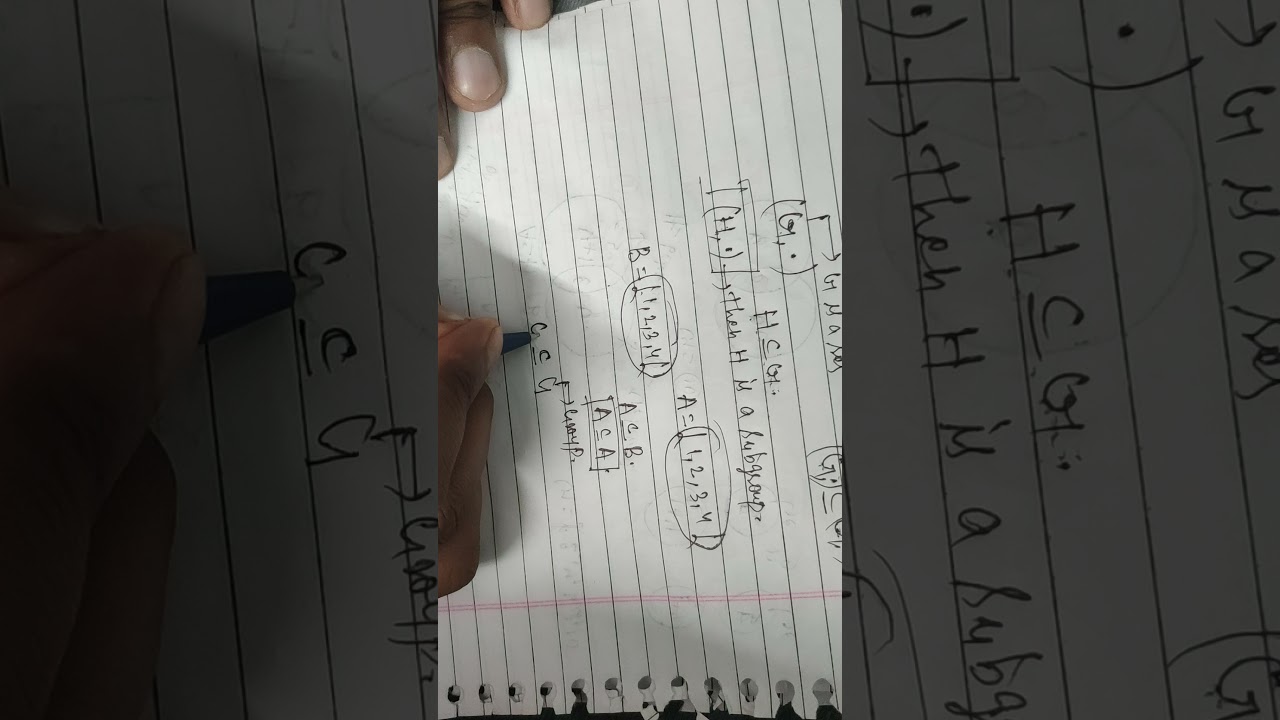 → G is a set
(G, •) H ⊆ G.
(H, •) → then H is a subgroup
A = {1, 2, 3, 4}
B = {1, 2, 3, 4}
A ⊆ B.
A ⊆ A.
→ Group
G ⊆ G